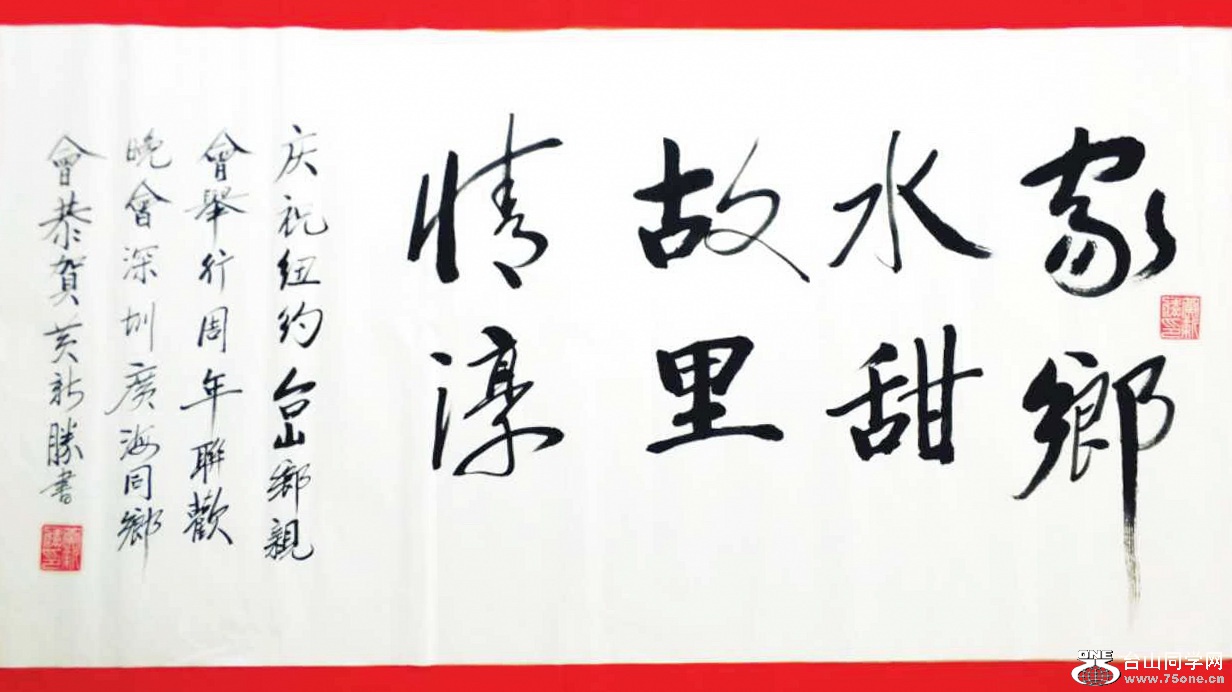 家鄉
水甜
故里
情淳
庆祝纽约台山鄉親
會舉行周年聯歡
晚會深圳廣海同鄉
會恭賀黄新勝書
ONE 台山同学网
www.75one.cn